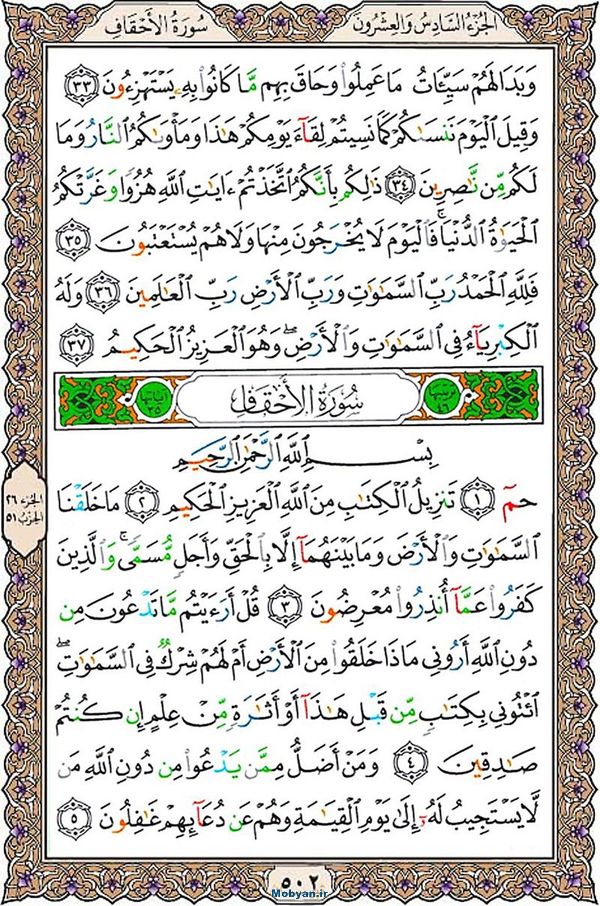 الجزء السادس والعشرون
سورة الأحقاف
وَبَدَا لَهُمْ سَيِّـَٔاتُ مَا عَمِلُوا۟ وَحَاقَ بِهِم مَّا كَانُوا۟ بِهِۦ يَسْتَهْزِءُونَ ٣٣
وَقِيلَ ٱلْيَوْمَ نَنسَىٰكُمْ كَمَا نَسِيتُمْ لِقَآءَ يَوْمِكُمْ هَٰذَا وَمَأْوَىٰكُمُ ٱلنَّارُ وَمَا
لَكُم مِّن نَّٰصِرِينَ ٣٤ ذَٰلِكُم بِأَنَّكُمُ ٱتَّخَذْتُمْ ءَايَٰتِ ٱللَّهِ هُزُوًا وَغَرَّتْكُمُ
ٱلْحَيَوٰةُ ٱلدُّنْيَا ۚ فَٱلْيَوْمَ لَا يُخْرَجُونَ مِنْهَا وَلَا هُمْ يُسْتَعْتَبُونَ ٣٥
فَلِلَّهِ ٱلْحَمْدُ رَبِّ ٱلسَّمَٰوَٰتِ وَرَبِّ ٱلْأَرْضِ رَبِّ ٱلْعَٰلَمِينَ ٣٦ وَلَهُ
ٱلْكِبْرِيَآءُ فِى ٱلسَّمَٰوَٰتِ وَٱلْأَرْضِ ۖ وَهُوَ ٱلْعَزِيزُ ٱلْحَكِيمُ ٣٧
ترتيبها ٤٦
سُورَةُ الأَحْقَافِ
آياتها ٣٥
بِسْمِ ٱللَّهِ ٱلرَّحْمَٰنِ ٱلرَّحِيمِ
حمٓ ١ تَنزِيلُ ٱلْكِتَٰبِ مِنَ ٱللَّهِ ٱلْعَزِيزِ ٱلْحَكِيمِ ٢ مَا خَلَقْنَا
ٱلسَّمَٰوَٰتِ وَٱلْأَرْضَ وَمَا بَيْنَهُمَآ إِلَّا بِٱلْحَقِّ وَأَجَلٍ مُّسَمًّى ۚ وَٱلَّذِينَ
كَفَرُوا۟ عَمَّآ أُنذِرُوا۟ مُعْرِضُونَ ٣ قُلْ أَرَءَيْتُم مَّا تَدْعُونَ مِن
دُونِ ٱللَّهِ أَرُونِى مَاذَا خَلَقُوا۟ مِنَ ٱلْأَرْضِ أَمْ لَهُمْ شِرْكٌ فِى ٱلسَّمَٰوَٰتِ ۖ
ٱئْتُونِى بِكِتَٰبٍ مِّن قَبْلِ هَٰذَآ أَوْ أَثَٰرَةٍ مِّنْ عِلْمٍ إِن كُنتُمْ
صَٰدِقِينَ ٤ وَمَنْ أَضَلُّ مِمَّن يَدْعُوا۟ مِن دُونِ ٱللَّهِ مَن
لَّا يَسْتَجِيبُ لَهُۥٓ إِلَىٰ يَوْمِ ٱلْقِيَٰمَةِ وَهُمْ عَن دُعَآئِهِمْ غَٰفِلُونَ ٥
الجزء ٢٦
الحزب ٥١
٥٠٢
Mobyan.ir